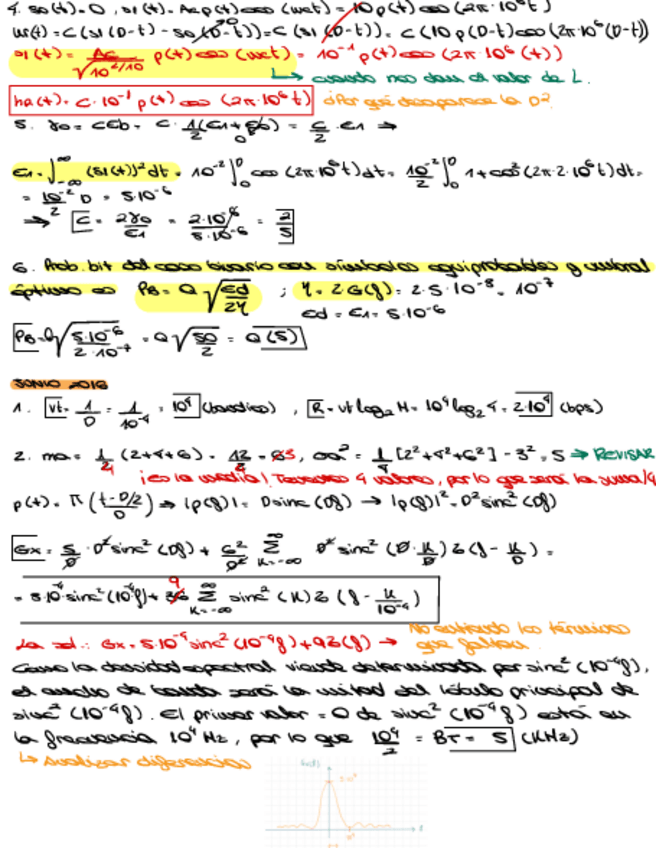 4. so(t)=0, s1(t)=Acp(t)cos(wct)=10p(t)cos(2π·10⁶t)
hr(t)=C(s1(D-t)-so(D-t))=C(s1(D-t))=C(10p(D-t)cos(2π·10⁶(D-t))
s1(t)=Ac/√10^(2/10) p(t)cos(wct)=10⁻¹p(t)cos(2π·10⁶(t))
↳ cuando nos dan el valor de L.
ha(t)=C·10⁻¹p(t)cos(2π·10⁶t) ¿Por qué desaparece la D?
5. γ0=CEb=C·1/2(E1+E0)=C/2·E1 ⇒
E1=∫(s1(t))²dt=10⁻²∫cos(2π·10⁶t)dt=10⁻²/2∫1+cos²(2π·2·10⁶t)dt=
=10⁻²/2 D=5·10⁻⁶
⇒ C=2γ0/E1=2·10⁻⁶/5·10⁻⁶=2/5
6. Prob. bit del caso binario con símbolos equiprobables y umbral
óptimo ⇔ PB=Q√(Ed/2η) ; η=2G(f)=2·5·10⁻⁸=10⁻⁷
Ed=E1=5·10⁻⁶
PB=Q√(5·10⁻⁶/2·10⁻⁷)=Q√(50/2)=Q(5)
JUNIO 2016
1. vt=1/D=1/10⁻⁴=10⁴(baudios), R=vtlog₂M=10⁴log₂4=2·10⁴(bps)
2. ma=1/4(2+4+6)=12/4=3, σa²=1/4[2²+4²+6²]-3²=5 → REVISAR
¡es la media! Tenemos 4 valores, por lo que será la suma/4
p(t)=π(t-D/2/D) ⇒ |p(f)|=Dsinc(Df) → |p(f)|²=D²sinc²(Df)
Gx=5/D·D²sinc²(Df)+6²/D² Σ D²sinc²(D·K/D)δ(f-K/D)=
=5·10⁻⁴sinc²(10⁻⁴f)+36 9 Σ sinc²(K)δ(f-K/10⁻⁴)
La sol.: Gx=5·10⁻⁴sinc²(10⁻⁴f)+9δ(f) → No entiendo los términos
que faltan.
Como la densidad espectral viene determinada por sinc²(10⁻⁴f),
el ancho de banda será la mitad del lóbulo principal de
sinc²(10⁻⁴f). El primer valor =0 de sinc²(10⁻⁴f) está en
la frecuencia 10⁴Hz, por lo que 10⁴/2=BT=5(KHz)
↳ Analizar diferencias
Gx(f)